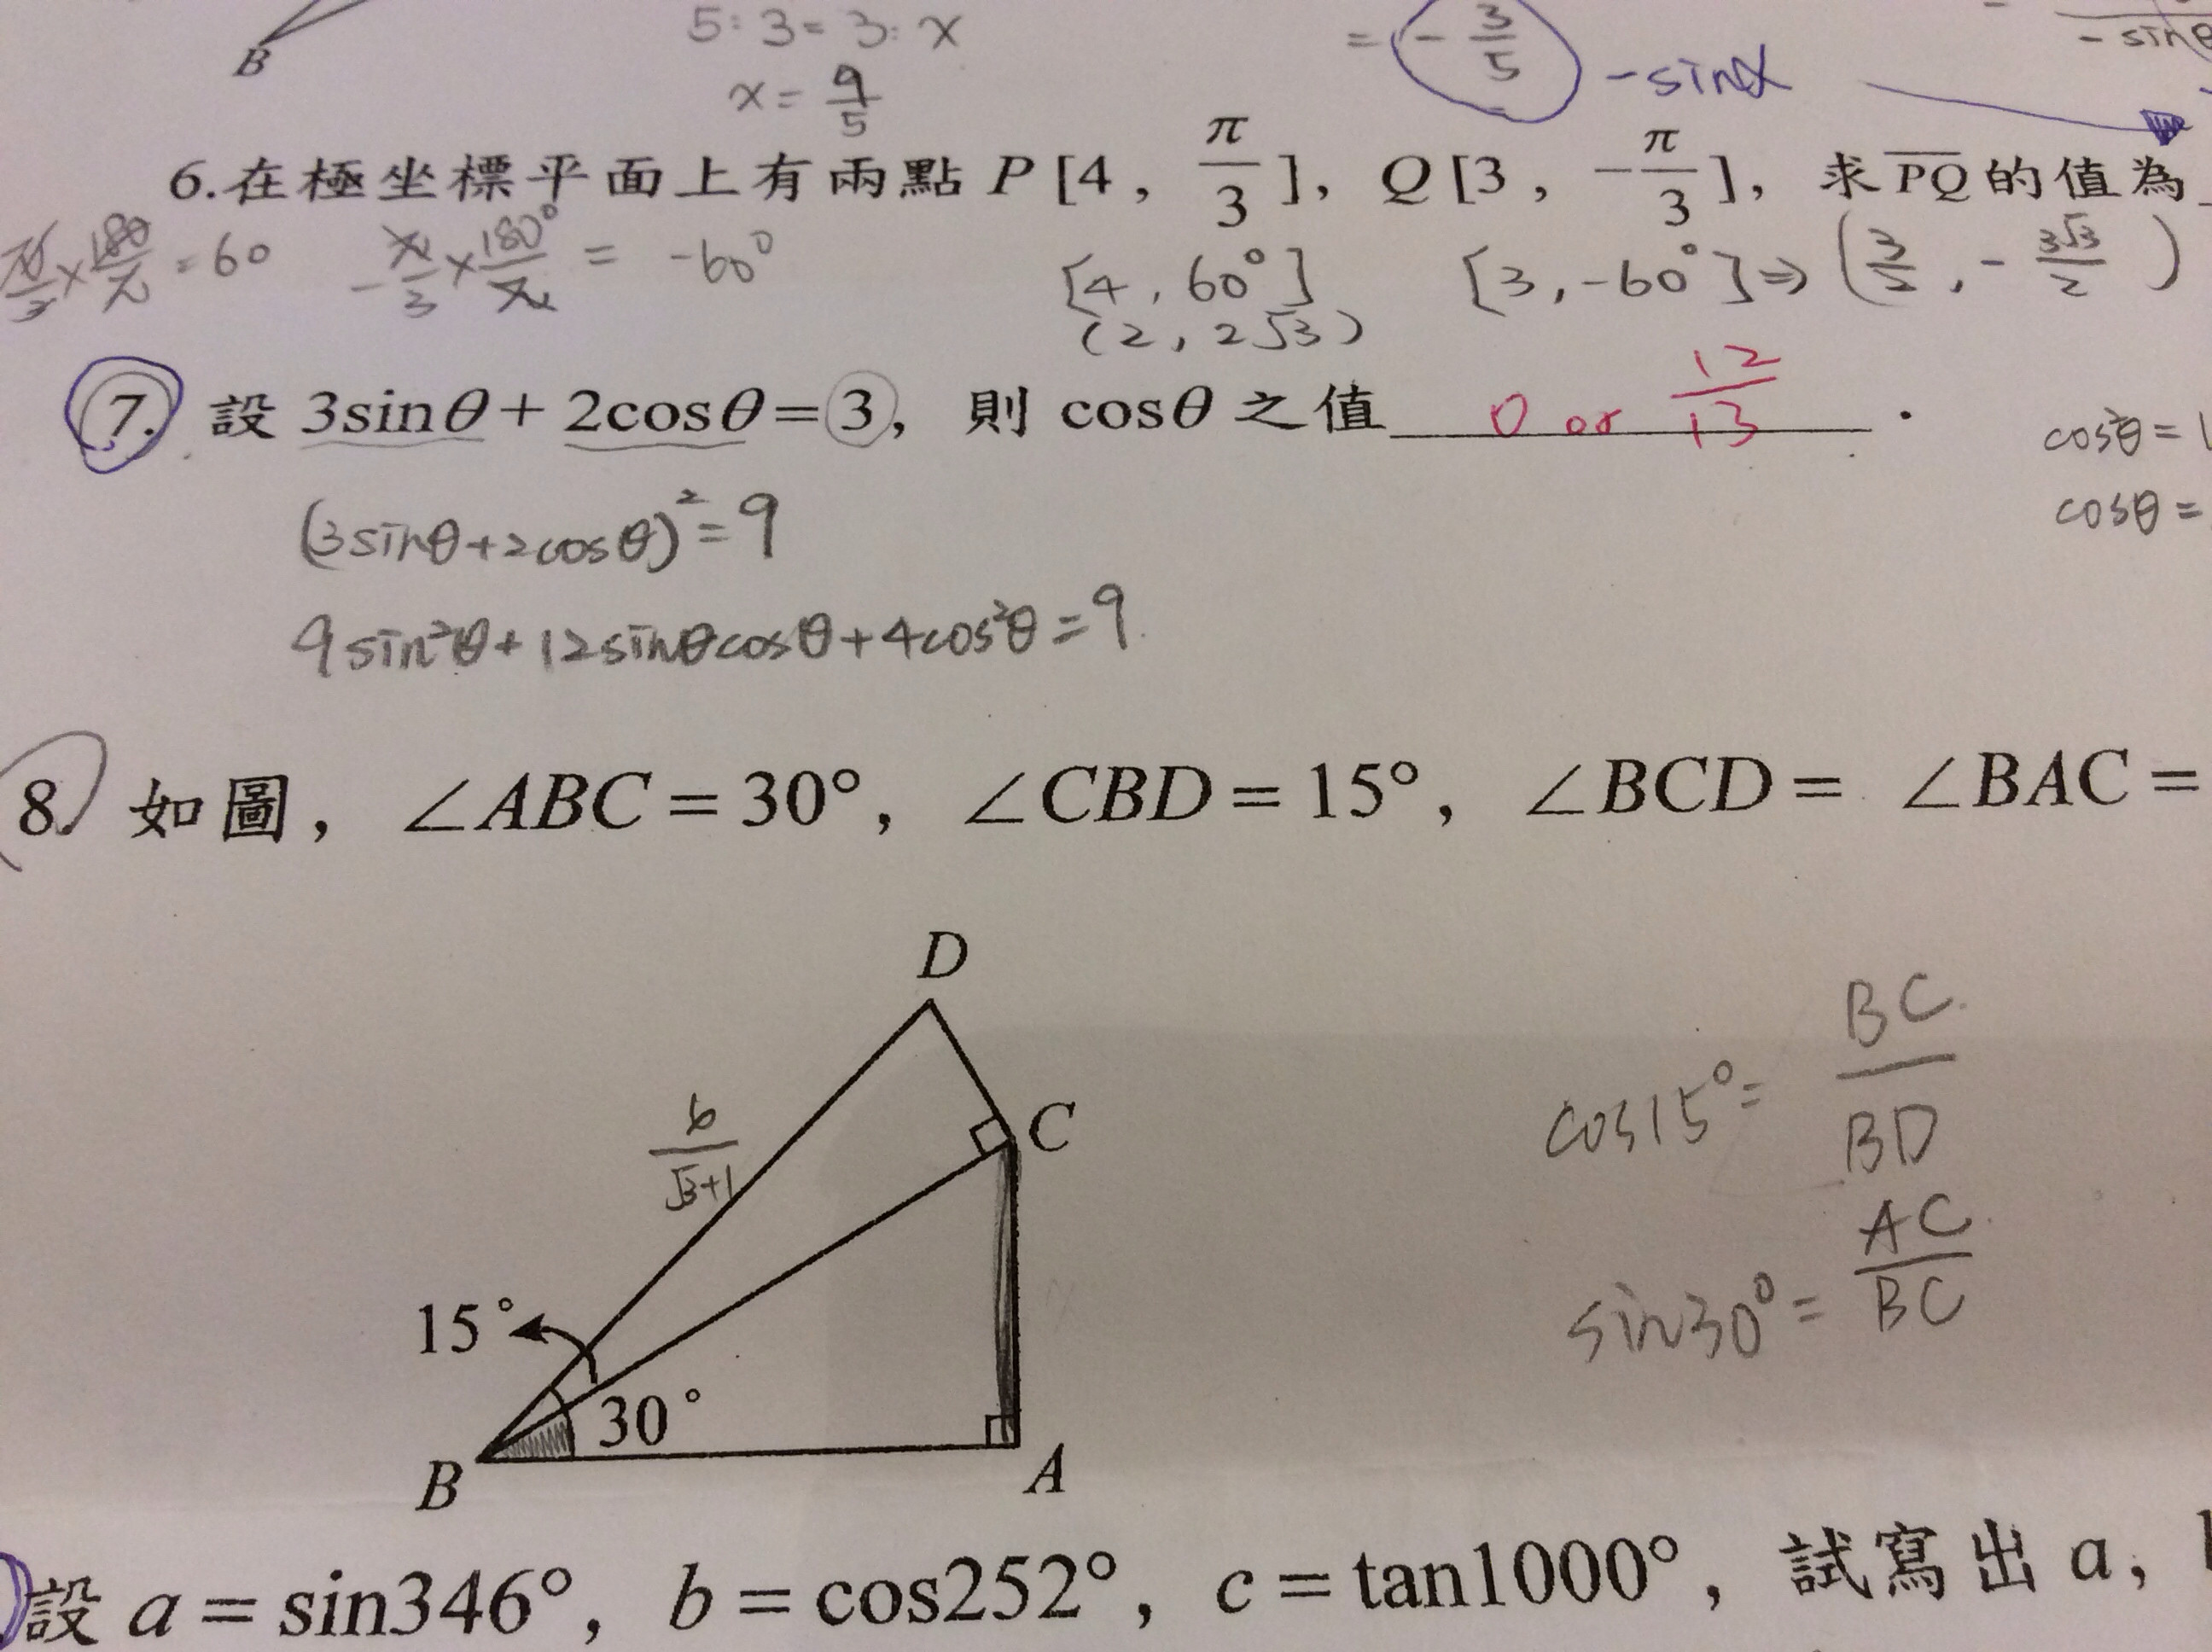 B
5:3=3:x
x=9/5
=-3/5
-sinα
-sinθ
6.在極坐標平面上有兩點 P[4, π/3], Q[3, -π/3], 求 \overline{PQ} 的值為
π/3×180/π=60
-π/3×180°/π = -60°
[4, 60°]
(2, 2√3)
[3, -60°]⇒(3/2, -3√3/2)
7. 設 3sinθ+2cosθ=3, 則 cosθ 之值 0 or 12/13 .
(3sinθ+2cosθ)²=9
9sin²θ+12sinθcosθ+4cos²θ=9
cos²θ=1
cosθ=
8. 如圖, ∠ABC=30°, ∠CBD=15°, ∠BCD= ∠BAC=
D
6/√3+1
C
15°
30°
B
A
cos15°=BC/BD
sin30°=AC/BC
設 a=sin346°, b=cos252°, c=tan1000°, 試寫出 a,